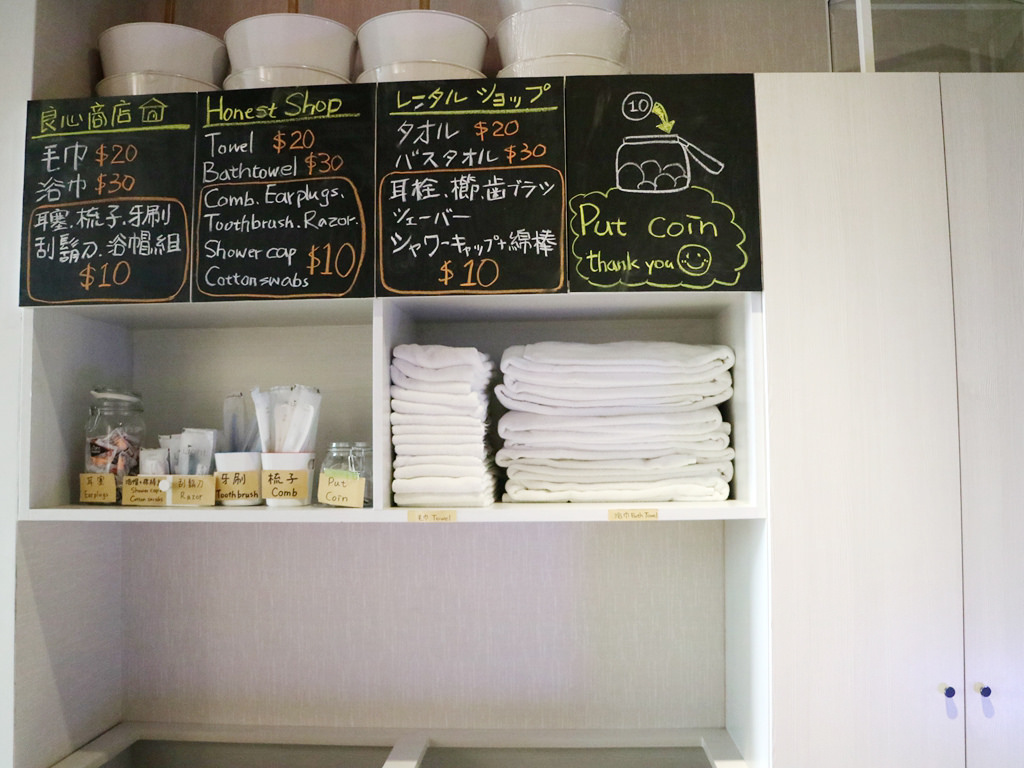 良心商店
毛巾 $20
浴巾 $30
耳塞.梳子.牙刷
刮鬍刀.浴帽組
$10
Honest Shop
Towel $20
Bathtowel $30
Comb. Earplugs.
Toothbrush. Razor.
Shower cap
Cotton swabs
$10
レンタル ショップ
タオル $20
バスタオル $30
耳栓.櫛.歯ブラシ
シェーバー
シャワーキャップ+綿棒
$10
10
Put coin
thank you
耳塞
Earplugs
Shower cap
Cotton swabs
刮鬍刀
Razor
牙刷
Toothbrush
梳子
Comb
Put
Coin
毛巾 Towel
浴巾 Bath Towel